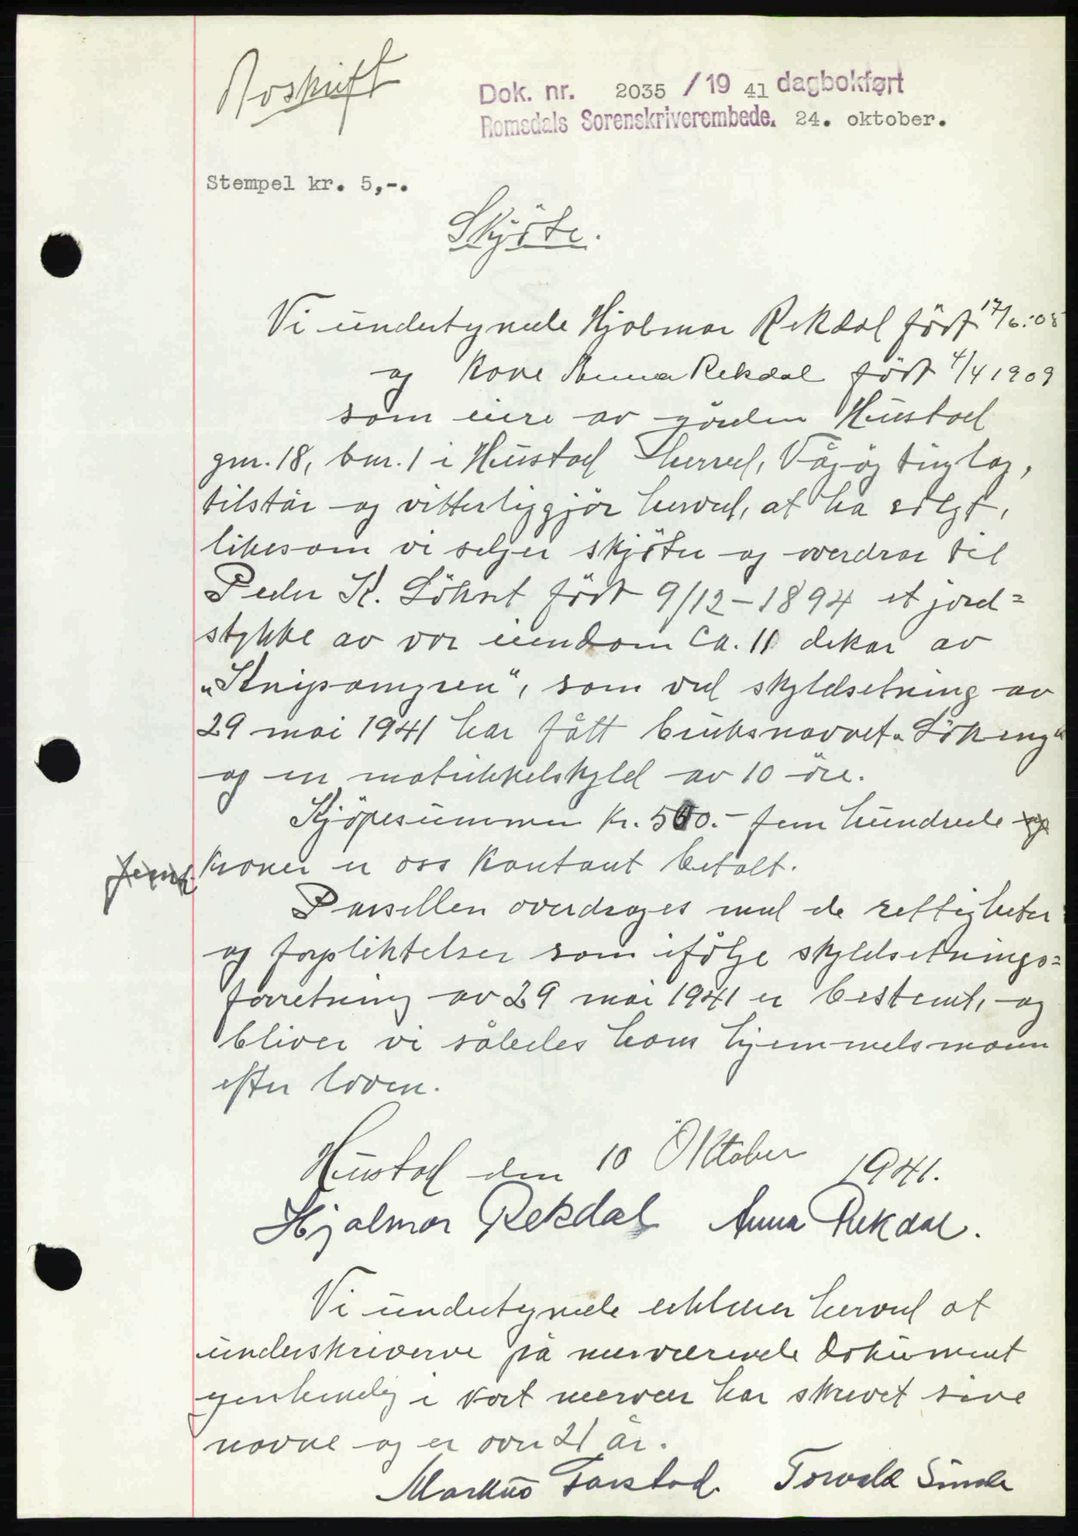 Avskrift
Dok. nr. 2035 / 19 41 dagbokført
Romsdals Sorenskriverembede. 24. oktober.
Stempel kr. 5,-.
Skjöte.
Vi undertegnede Hjalmar Rekdal født 17/6.-05
og kone Anna Rekdal født 4/4 1909
som eiere av gården Hustad
gnr. 18, bnr. 1 i Hustad herred, Vågøy tinglag,
tilstår og vitterliggjör herved, at ha solgt,
likesom vi selger skjöter og overdrar til
Peder K. Lökset födt 9/12-1894 et jord=
stykke av vor eiendom ca. 11 dekar av
„Knipamyren“, som ved skyldsetning av
29 mai 1941 har fått bruksnavnet „Lökeng“
og en matrikkelskyld av 10 öre.
Kjöpesummen kr. 500.- fem hundrede
kroner er oss kontant betalt.
Parsellen overdrages med de rettigheter
og forpliktelser som ifölge skyldsetnings=
forretning av 29 mai 1941 er bestemt, og
bliver vi således hans hjemmelsmann
efter loven.
Hustad den 10 Oktober 1941.
Hjalmar Rekdal Anna Rekdal.
Vi undertegnede erklærer herved at
underskriverne på nærværende dokument
egenhendig i vort nærvær har skrevet sine
navne og er over 21 år.
Markus Farstad Torvald Sunde